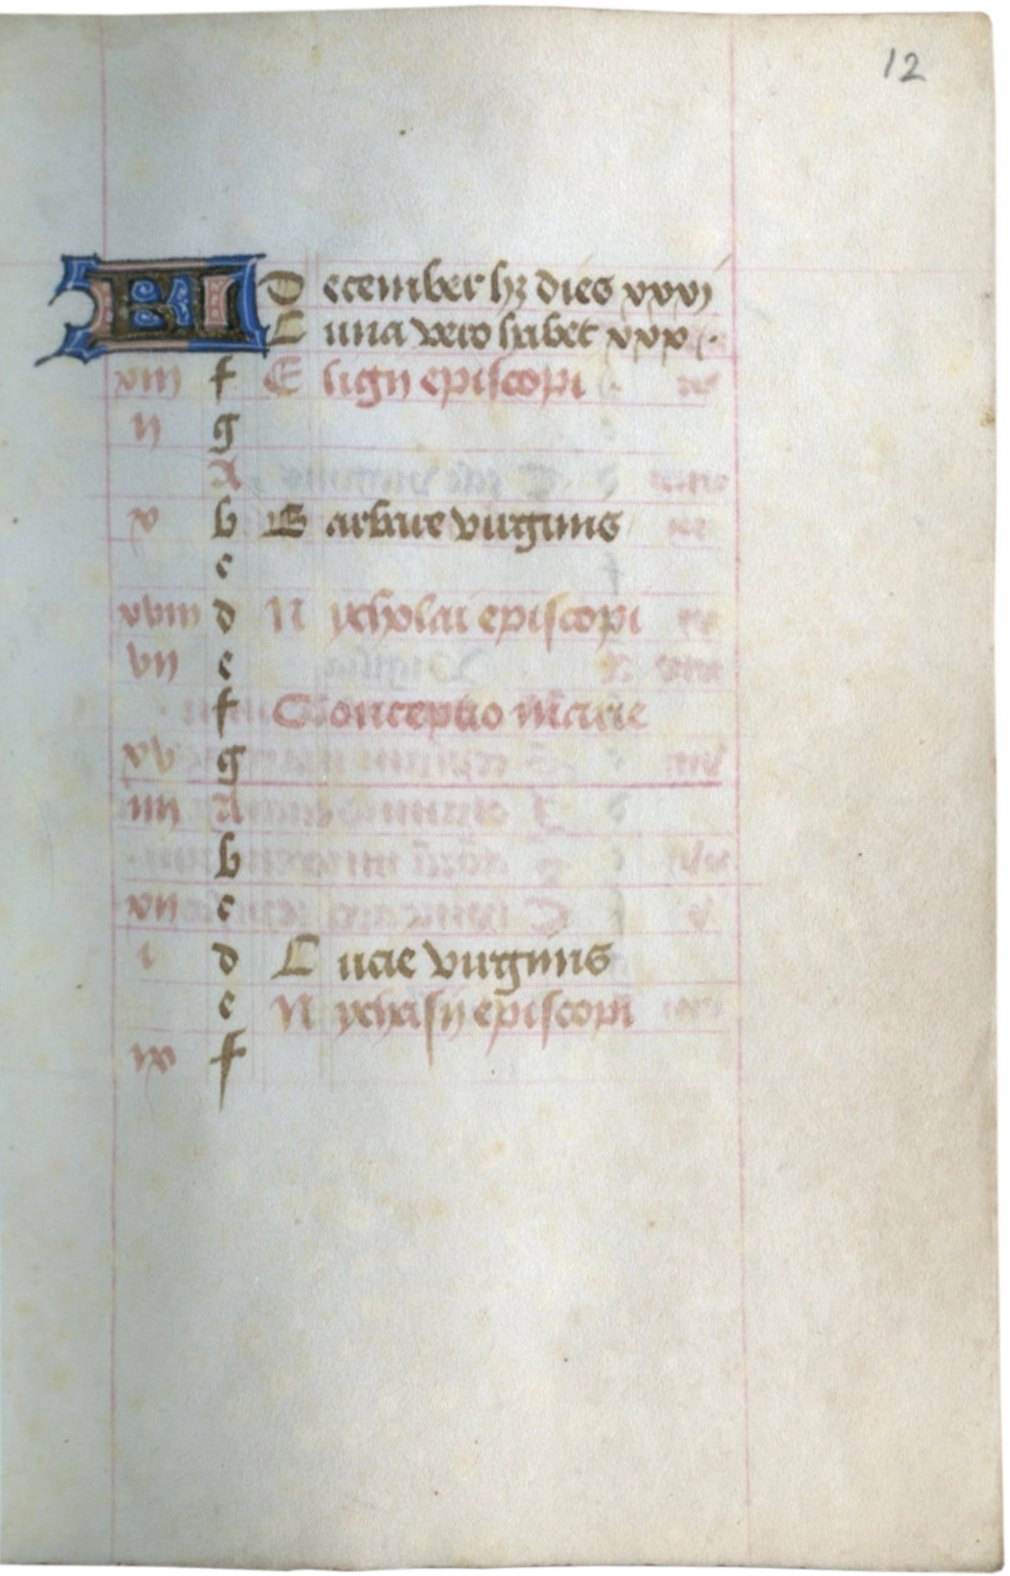 12
KL December hꝫ dies xxxi
Luna vero habet xxx.
xiii f Eligii episcopi
ii g
A
x b Barbare virginis
c
xviii d Nycholai episcopi
vii e
f Conceptio Marie
xv g
iiii A
b
xii c
i d Lucie virginis
e Nychasii episcopi
ix f